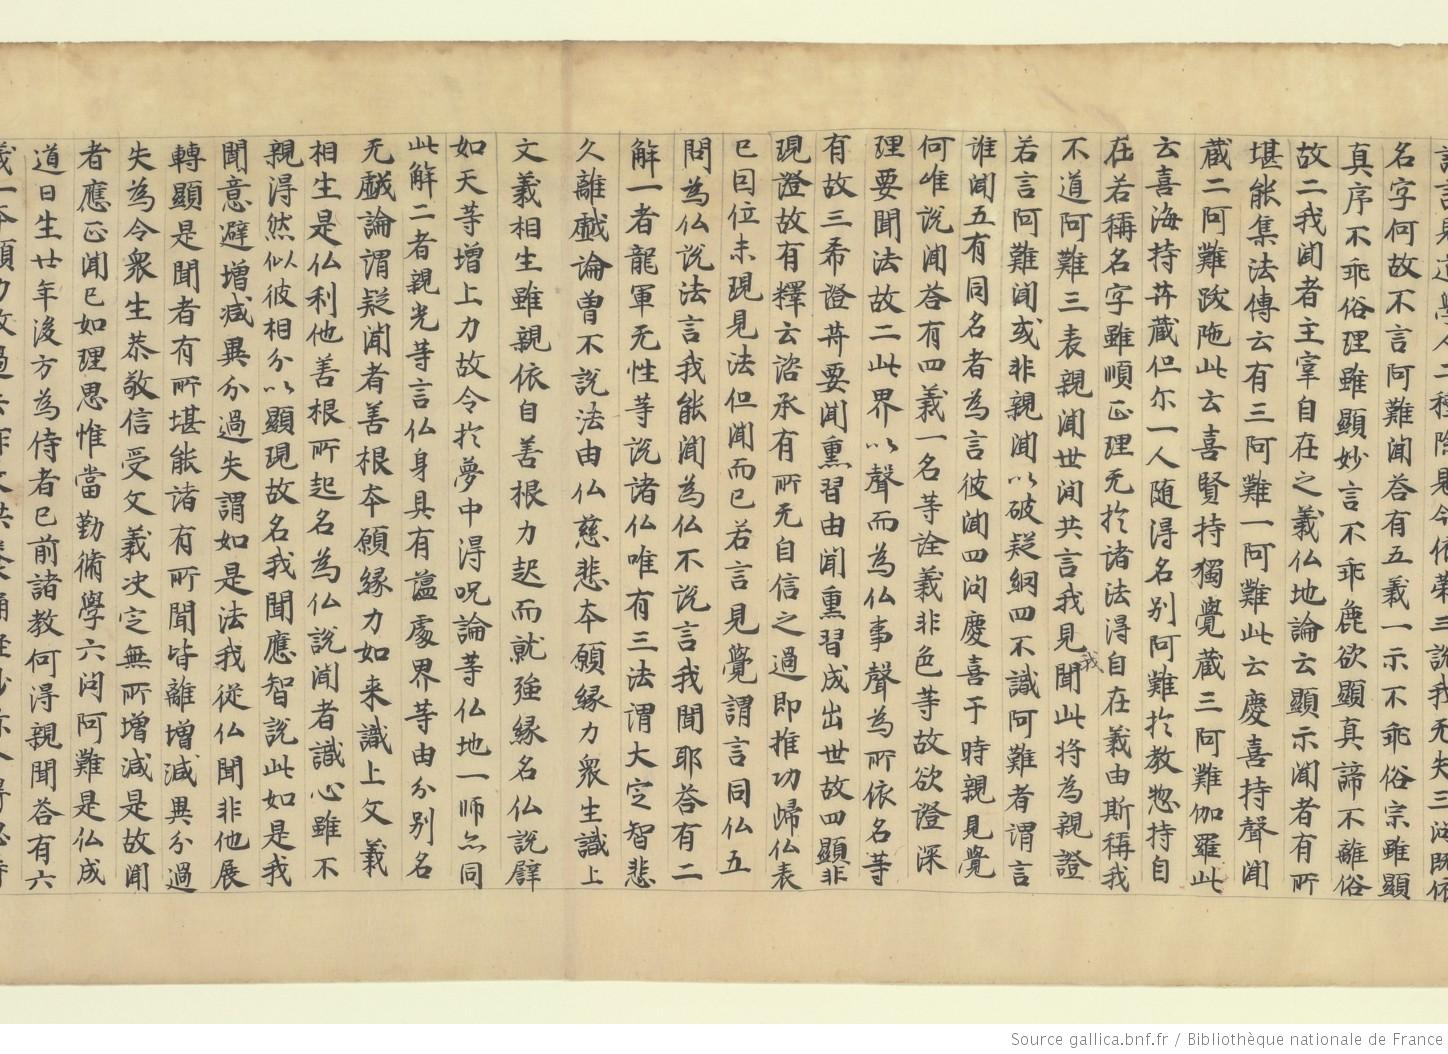 名字何故不言阿難聞答有五義一示不乖俗宗雖顯
真序不乖俗理雖顯妙言不乖麁欲顯真諦不離俗
故二我聞者主宰自在之義仏地論云顯示聞者有所
堪能集法傳云有三阿難一阿難此云慶喜持聲聞
蔵二阿難跋陁此云喜賢持獨覺蔵三阿難伽羅此
云喜海持菩薩蔵但尓一人随得名別阿難扵教惣持自
在若稱名字雖順正理无扵諸法得自在義由斯稱我
不道阿難三表親聞世間共言我見聞此将為親證
我
若言阿難聞或非親聞以破疑網四不識阿難者謂言
誰聞五有同名者為言彼聞四问慶喜于時親見覺
何唯說聞答有四義一名等詮義非色等故欲證深
理要聞法故二此界以聲而為仏事聲為所依名等
有故三希證菩提要聞熏習由聞熏習成出世故四顯非
現證故有釋云諮承有所无自信之過即推功歸仏表
已因位未現見法但聞而已若言見覺謂言同仏五
問為仏說法言我能聞為仏不說言我聞耶答有二
解一者龍軍无性等說諸仏唯有三法謂大定智悲
久離戲論曽不說法由仏慈悲本願縁力衆生識上
文義相生雖親依自善根力起而就強縁名仏說譬
如天等增上力故令扵夢中得呪論等仏地一師亦同
此解二者親光等言仏身具有蘊處界等由分別名
无戲論謂疑聞者善根本願縁力如来識上文義
相生是仏利他善根所起名為仏說聞者識心雖不
親得然似彼相分以顯現故名我聞應智說此如是我
聞意避增減異分過失謂如是法我従仏聞非他展
轉顯是聞者有所堪能諸有所聞皆離增減異分過
失為令衆生恭敬信受文義决定無所增減是故聞
者應正聞已如理思惟當勤脩學六问阿難是仏成
道日生廿年後方為侍者已前諸教何得親聞答有六